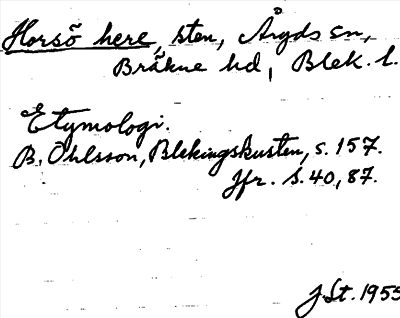 Horsö here, sten, Åryds sn,
Bräkne hd, Blek. l.
Etymologi.
B. Ohlsson, Blekingskusten, s. 157.
Jfr. s. 40, 87.
J St. 1955